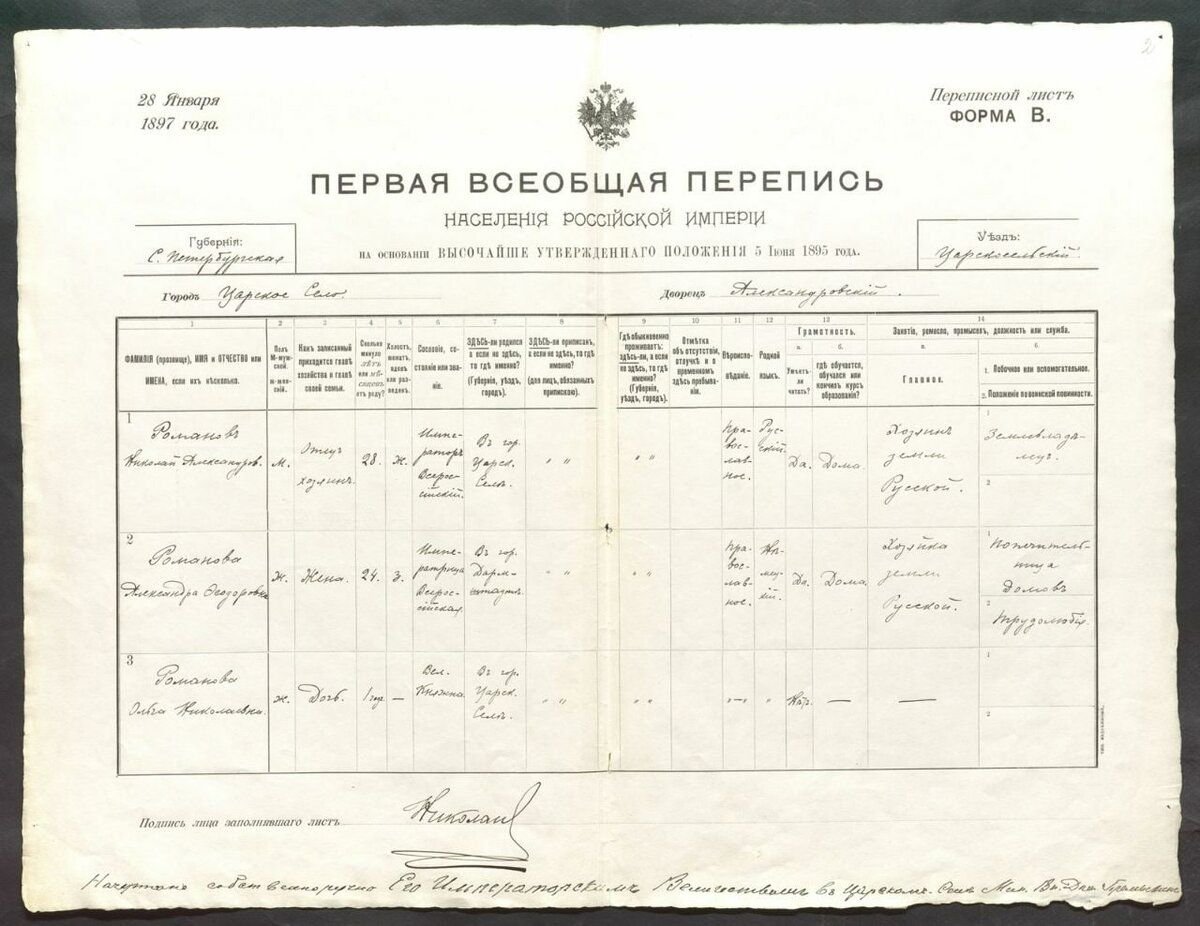 2
28 Января
1897 года.
Переписной листъ
ФОРМА В.
ПЕРВАЯ ВСЕОБЩАЯ ПЕРЕПИСЬ
НАСЕЛЕНІЯ РОССІЙСКОЙ ИМПЕРІИ
НА ОСНОВАНІИ ВЫСОЧАЙШЕ УТВЕРЖДЕННАГО ПОЛОЖЕНІЯ 5 Іюня 1895 года.
Губернія:
С. Петербургская
Уѣздъ:
Царскосельскій
Городъ Царское Село.
Дворецъ Александровскій.
1 2 3 4 5 6 7 8 9 10 11 12 13 14
ФАМИЛІЯ (прозвище), ИМЯ и ОТЧЕСТВО или
ИМЕНА, если ихъ нѣсколько.
Полъ
М-муж-
ской.
Ж-жен-
скій.
Какъ записанный
приходится главѣ
хозяйства и главѣ
своей семьи.
Сколько
минуло
лѣтъ
или мѣ-
сяцевъ
отъ роду?
Холостъ,
женатъ,
вдовъ
или раз-
веденъ.
Сословіе, со-
стояніе или зва-
ніе.
ЗДѢСЬ-ли родился
а если не здѣсь,
то гдѣ именно?
(Губернія, уѣздъ,
городъ).
ЗДѢСЬ-ли приписанъ,
а если не здѣсь, то гдѣ
именно?
(для лицъ, обязанныхъ
припискою).
Гдѣ обыкновенно
проживаетъ:
здѣсь-ли, а если
не здѣсь, то гдѣ
именно?
(Губернія,
уѣздъ, городъ).
Отмѣтка
объ отсутствіи,
отлучкѣ и о
временномъ
здѣсь пребыва-
ніи.
Вѣроиспо-
вѣданіе.
Родной
языкъ.
Грамотность.
а.
Умѣетъ-
ли
читать?
б.
гдѣ обучается,
обучался или
кончилъ курсъ
образованія?
Занятіе, ремесло, промыселъ, должность или служба.
Главное.
1. Побочное или вспомогательное.
2. Положеніе по воинской повинности.
1
Романовъ
Николай Александров.
М.
хозяинъ
28
ж.
Импе-
раторъ
Всерос-
сійскій.
Въ гор.
Царск.
Селѣ.
" "
" "
Пра-
вос-
лав-
ное.
Рус-
скій.
Да.
Дома.
Хозяинъ
земли
Русской.
1
Землевладѣ-
лецъ.
2
2
Романова
Александра Ѳеодоровна
Ж.
Жена.
24
з.
Импе-
ратрица
Всерос-
сійская
Въ гор.
Дарм-
штадтъ.
" "
" "
Пра-
вос-
лав-
ное.
Нѣ-
мец-
кій.
Да.
Дома.
Хозяйка
земли
Русской.
1
Попечитель-
ница
Домовъ
2
трудолюбія.
3
Романова
Ольга Николаевна.
ж.
Дочь.
1 год.
—
Вел.
Княжна.
Въ гор.
Царск.
Селѣ.
" "
" "
"—"
"
Нѣтъ.
—
—
1
2
Подпись лица заполнявшаго листъ
Николай
собственноручно Его Императорскимъ Величествомъ въ Царскомъ Селѣ